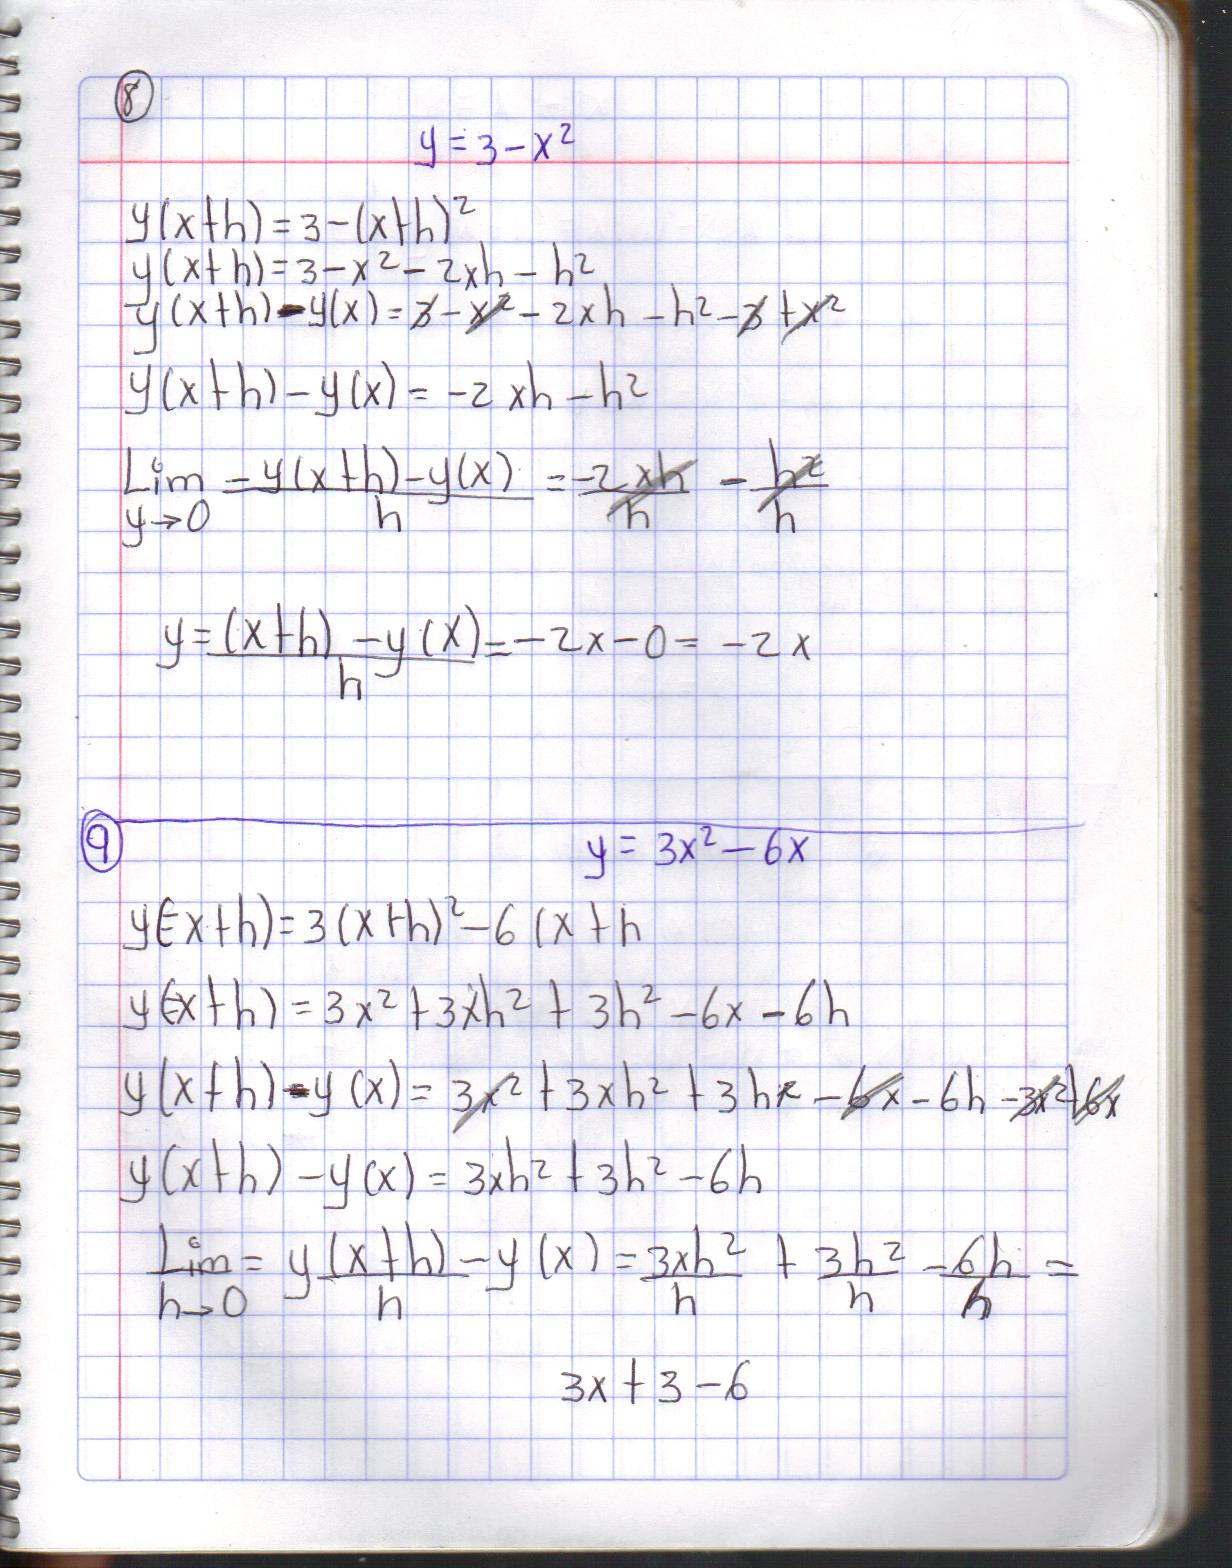 8
y = 3 - x²
y(x+h) = 3 - (x+h)²
y(x+h) = 3 - x² - 2xh - h²
y(x+h) - y(x) = 3 - x² - 2xh - h² - 3 + x²
y(x+h) - y(x) = -2xh - h²
Lim -y(x+h) - y(x) = -2xh - h²
y→0 h h h
y = (x+h) - y(x) = -2x - 0 = -2x
h
9
y = 3x² - 6x
y(-x+h) = 3(x+h)² - 6(x+h
y(-x+h) = 3x² + 3xh² + 3h² - 6x - 6h
y(x+h) - y(x) = 3x² + 3xh² + 3hx - 6x - 6h - 3x² + 6x
y(x+h) - y(x) = 3xh² + 3h² - 6h
Lim = y(x+h) - y(x) = 3xh² + 3h² - 6h =
h→0 h h h h
3x + 3 - 6